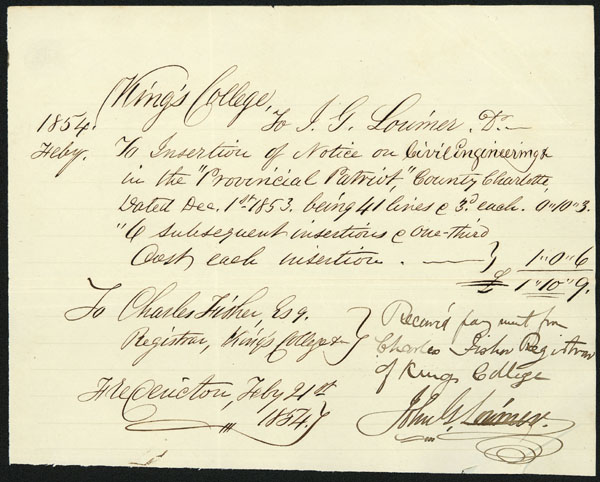 King's College,
To J. G. Lorimer. Dr
1854.
Feby. To Insertion of Notice on Civil Engineering &
in the "Provincial Patriot," County Charlotte,
Dated Dec. 1st 1853. being 41 lines @ 3d each. 0"10"3.
"6 subsequent insertions @ one-third
Cost each insertion. } 1"0"6
£ 1"10"9.
To Charles Fisher, Esq.
Registrar, King's College &c }
Fredericton, Feby 21st
1854. }
Received payment from
Charles Fisher Registrar
of Kings College
John G. Lorimer.